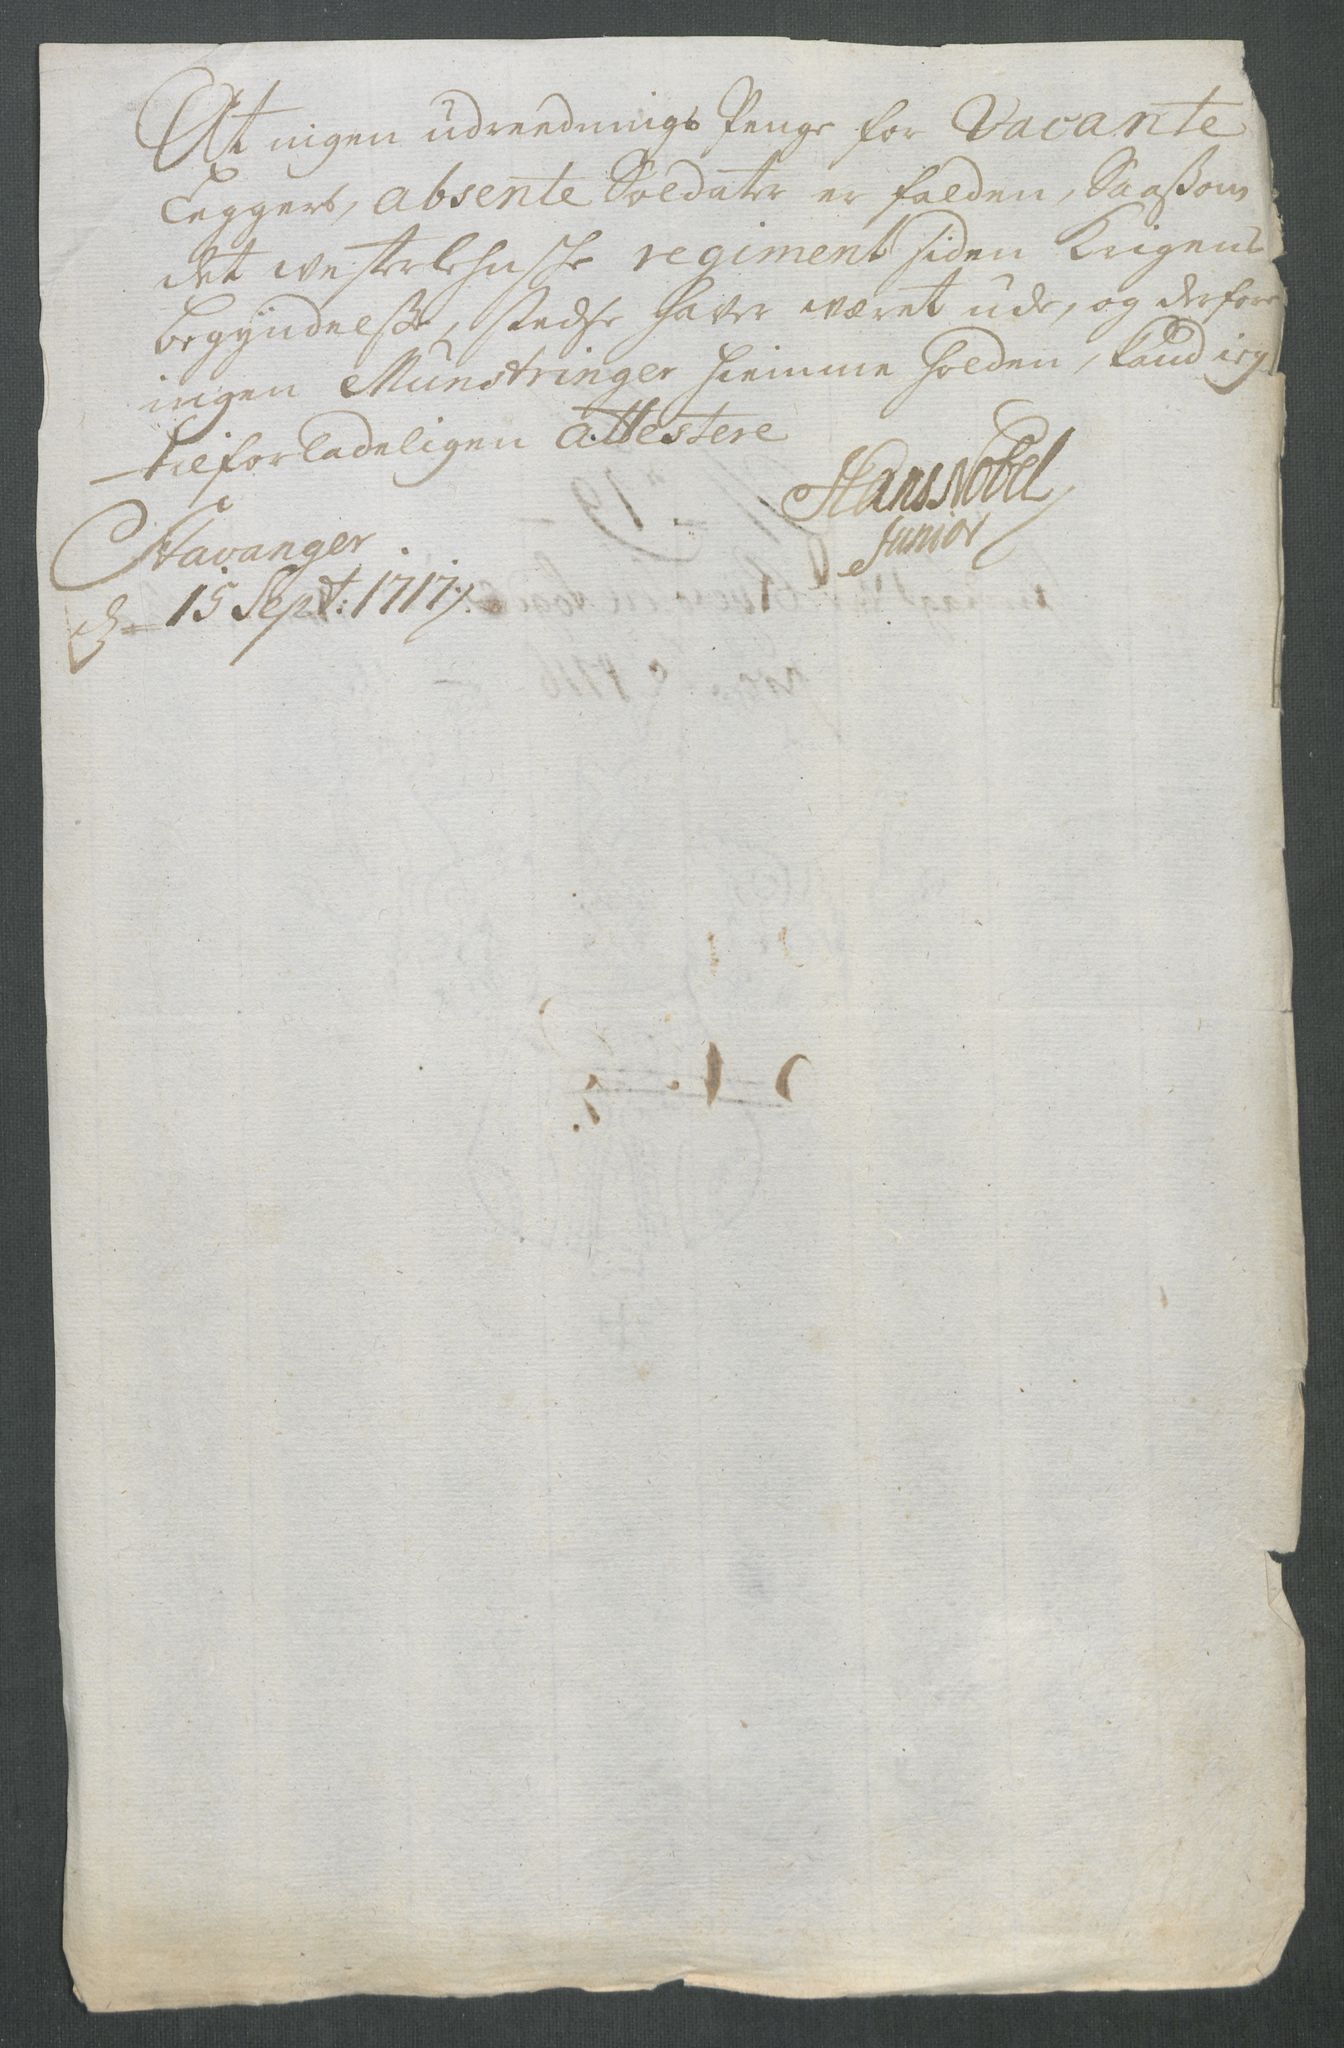 At ingen udreednings Penge for Vacante
Legger, absente Soldater er falden, Saaßom
det westerlehnske regiment siden Krigens
begyndelße, stedse haver wæret ude, og derfore
ingen Munstringer hiemme holden, kand ieg
tilforladeligen attestere
Hans Nobel
Junior
Stavanger
d. 15 Sept: 1717